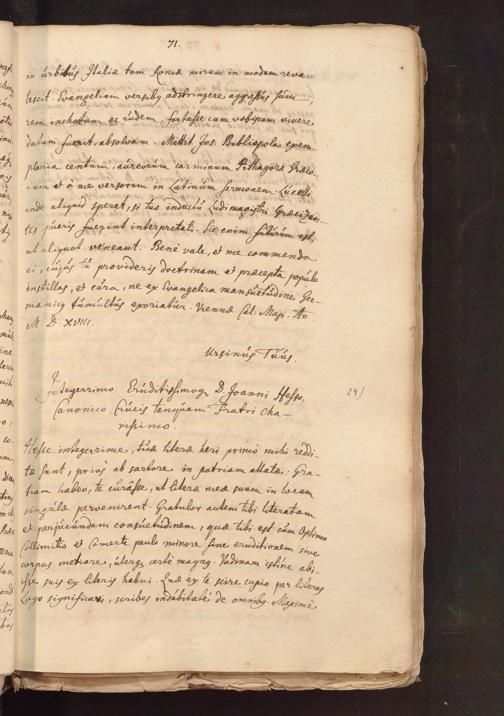 71.
in urbibus Italiæ tum Romæ mirum in modum reva-
lescit. Evangelium versibus adstringere aggressus sum,
rem inchoatam et rudem, fortasse cum vobiscum vivere
datum fuerit, absolvam. Mittit Jos. Bibliopola exem-
plaria centum, aureorum carminum Pithagoræ Græco-
rum et a me versorum in Latinum sermonem. Lucelli
inde aliquid sperat, si tuo inductu Ludimagistri Græcizan-
tes pueris fuerint interpretati. Sic enim futurum est,
ut aliquot veneant. Bene vale, et me commenda
ei, cujus tu provideris doctrinam et præcepta populo
instillas, et cura, ne ex Evangelica mansuetudine Ger-
manicus tumultus exoriatur. Viennæ Cal. Maji. Ao.
M. D. XVIII.
Ursinus Tuus.
Integerrimo Eruditissimoq. D. Joanni Hesso,
24)
Canonico Crucis tanquam Fratri Cha-
rissimo.
Hesse integerrime, tuæ literæ heri primo mihi reddi-
tæ sunt, prius ab sartore in patriam allatæ. Gra-
tiam habeo, te curasse, ut literæ meæ suum in locum
singulæ pervenirent. Gratulor autem tibi literatam
et perjucundam consuetudinem, quæ tibi est cum Optimo
Collimitio et Comerte paulo minore sine eruditionem sive
corpus metiare, uterq. certe magnus. Vadianum istinc abi-
isse suis ex literis habui. Quæ ex te scire cupio per literas
Logo significari, scribes indubitate de omnibus. Maxime